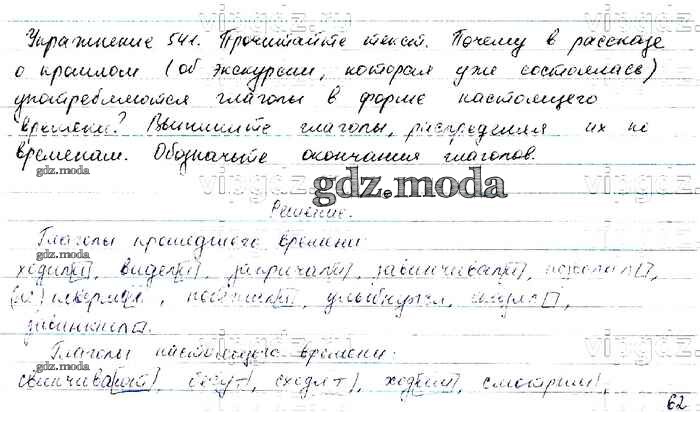 Упражнение 541. Прочитайте текст. Почему в рассказе
о прошлом (об экскурсии, которая уже состоялась)
употребляются глаголы в форме настоящего
времени? Выпишите глаголы, распределяя их по
временам. Обозначьте окончания глаголов.
gdz.moda
gdz.moda
Решение.
Глаголы прошедшего времени:
gdz.moda
ходили, видели, закричали, завинчивали,
(не) , улыбнулся,
Глаголы настоящего времени:
gdz.moda
свинчивают, бегут, сходят, ходим, смотрим,
62